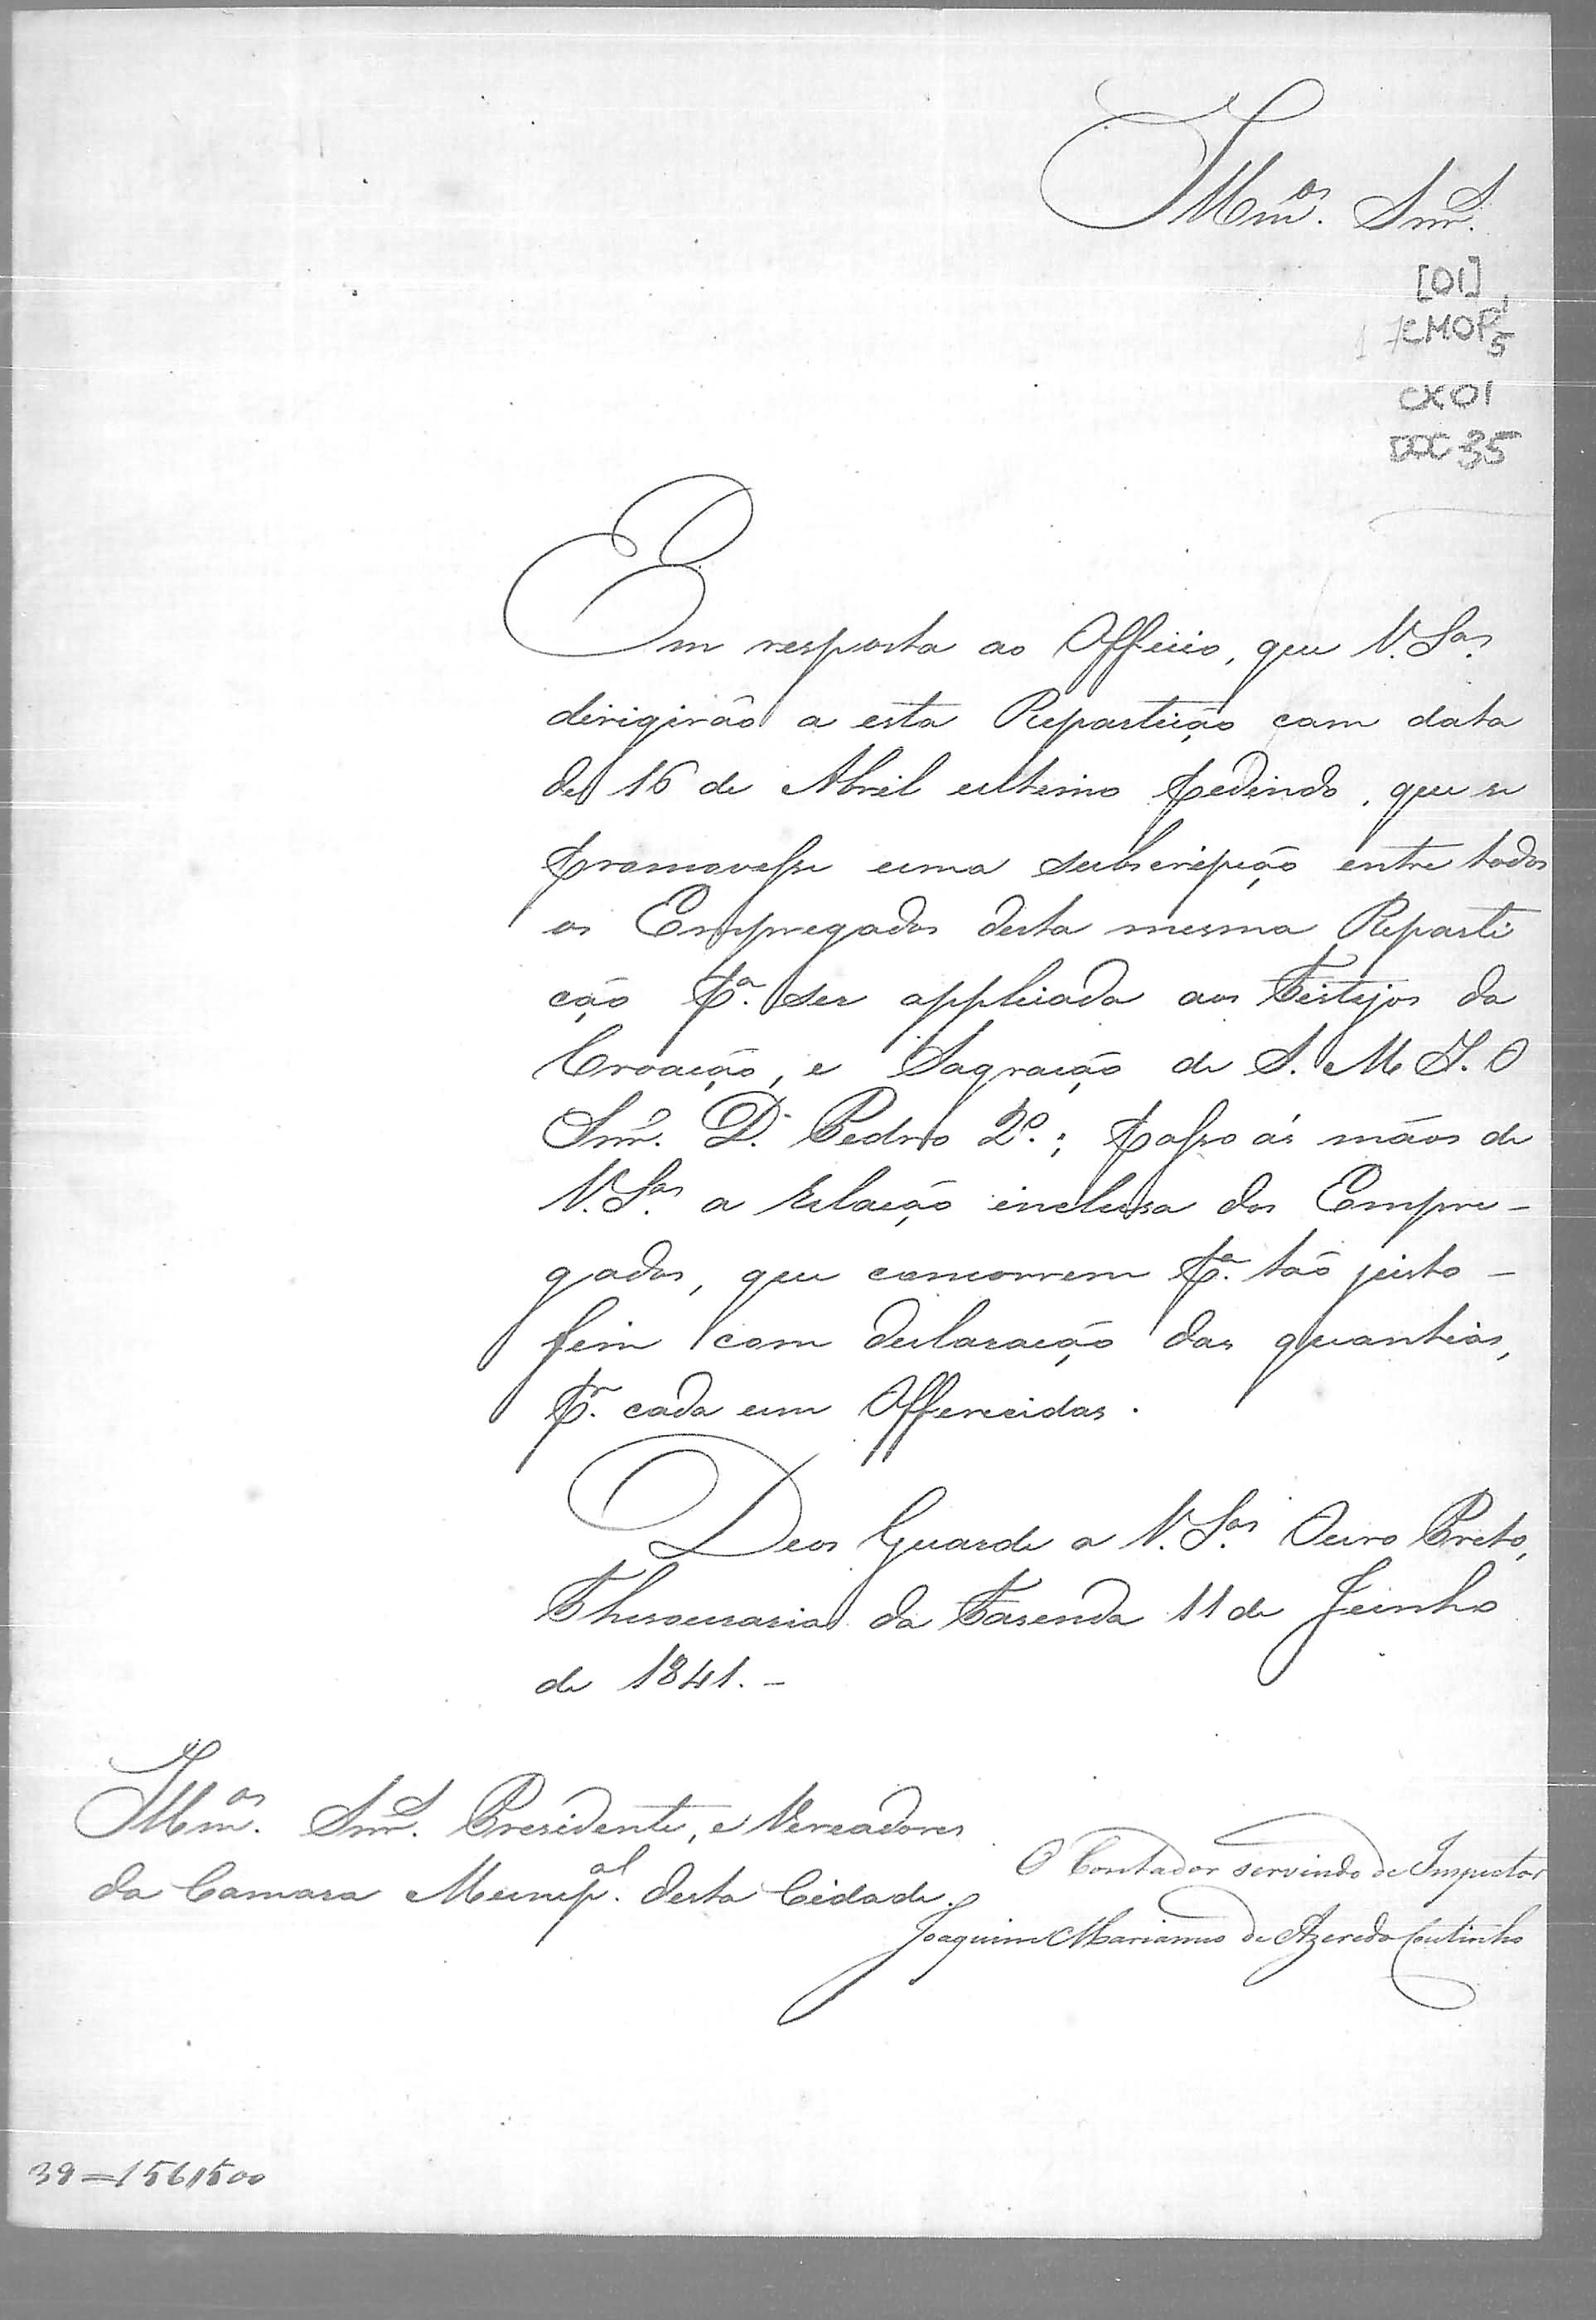 Illmos. Snrs.
[01]
CMOP
5
CX01
DOC 35
Em resposta ao Officio, que V. Sas.
dirigirão a esta Repartição com data
de 16 de Abril ultimo pedindo, que se
promovesse uma subscripção entre todos
os Empregados desta mesma Reparti
ção pa. ser applicada aos Festejos da
Croação, e Sagração de S. M. I. O
Snr. D. Pedro 2o.; passo ás mãos de
V. Sas. a relação inclusa dos Empre-
gados, que concorrem pa. tão justo-
fim com declaração das quantias,
pr. cada um Offerecidas.
Deos Guarde a V. Sas. Ouro Preto,
Thesouraria da Fasenda 11 de Junho
de 1841.-
Illmos. Snrs. Presidente, e Vereadores
da Camara Municpal. desta Cidade.
O Contador servindo de Inspector
Joaquim Marianno de Azeredo Coutinho